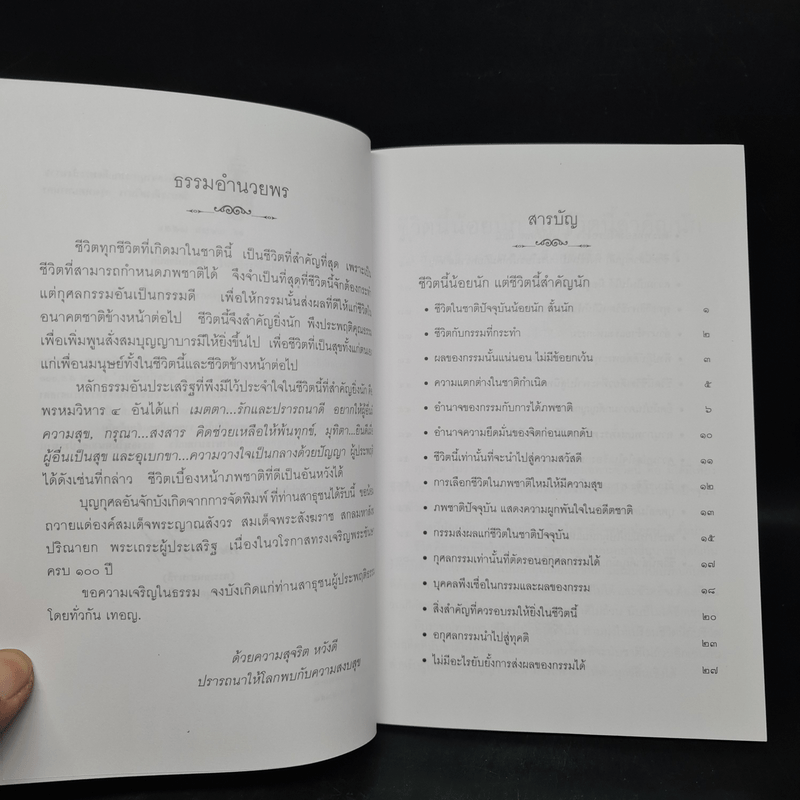 ธรรมอำนวยพร
ชีวิตทุกชีวิตที่เกิดมาในชาตินี้ เป็นชีวิตที่สำคัญที่สุด เพราะเป็น
ชีวิตที่สามารถกำหนดภพชาติได้ จึงจำเป็นที่สุดที่ชีวิตนี้จักต้องกระทำ
แต่กุศลกรรมอันเป็นกรรมดี เพื่อให้กรรมนั้นส่งผลที่ดีให้แก่ชีวิตใน
อนาคตชาติข้างหน้าต่อไป ชีวิตนี้จึงสำคัญยิ่งนัก พึงประพฤติคุณธรรม
เพื่อเพิ่มพูนสั่งสมบุญญาบารมีให้ยิ่งขึ้นไป เพื่อชีวิตที่เป็นสุขทั้งแก่ตนเอง
แก่เพื่อนมนุษย์ทั้งในชีวิตนี้และชีวิตข้างหน้าต่อไป
หลักธรรมอันประเสริฐที่พึงมีไว้ประจำใจในชีวิตนี้ที่สำคัญยิ่งนัก คือ
พรหมวิหาร ๔ อันได้แก่ เมตตา...รักและปรารถนาดี อยากให้ผู้อื่นมี
ความสุข, กรุณา...สงสาร คิดช่วยเหลือให้พ้นทุกข์, มุทิตา...ยินดีเมื่อ
ผู้อื่นเป็นสุข และอุเบกขา...ความวางใจเป็นกลางด้วยปัญญา ผู้ประพฤติ
ได้ดังเช่นที่กล่าว ชีวิตเบื้องหน้าภพชาติที่ดีเป็นอันหวังได้
บุญกุศลอันจักบังเกิดจากการจัดพิมพ์ ที่ท่านสาธุชนได้รับนี้ ขอน้อม
ถวายแด่องค์สมเด็จพระญาณสังวร สมเด็จพระสังฆราช สกลมหาสังฆ
ปริณายก พระเถระผู้ประเสริฐ เนื่องในวโรกาสทรงเจริญพระชันษา
ครบ ๑๐๐ ปี
ขอความเจริญในธรรม จงบังเกิดแก่ท่านสาธุชนผู้ประพฤติธรรม
โดยทั่วกัน เทอญ.
ด้วยความสุจริต หวังดี
ปรารถนาให้โลกพบกับความสงบสุข
สารบัญ
ชีวิตนี้น้อยนัก แต่ชีวิตนี้สำคัญนัก
• ชีวิตในชาติปัจจุบันน้อยนัก สั้นนัก ๑
• ชีวิตกับกรรมที่กระทำ ๒
• ผลของกรรมนั้นแน่นอน ไม่มีข้อยกเว้น ๓
• ความแตกต่างในชาติกำเนิด ๕
• อำนาจของกรรมกับการได้ภพชาติ ๖
• อำนาจความยึดมั่นของจิตก่อนแตกดับ ๑๐
• ชีวิตนี้เท่านั้นที่จะนำไปสู่ความสวัสดี ๑๑
• การเลือกชีวิตในภพชาติใหม่ให้มีความสุข ๑๒
• ภพชาติปัจจุบัน แสดงความผูกพันใจในอดีตชาติ ๑๓
• กรรมส่งผลแก่ชีวิตในชาติปัจจุบัน ๑๕
• กุศลกรรมเท่านั้นที่ตัดรอนอกุศลกรรมได้ ๑๗
• บุคคลพึงเชื่อในกรรมและผลของกรรม ๑๘
• สิ่งสำคัญที่ควรอบรมให้ยิ่งในชีวิตนี้ ๒๐
• อกุศลกรรมนำไปสู่ทุคติ ๒๓
• ไม่มีอะไรยับยั้งการส่งผลของกรรมได้ ๒๗